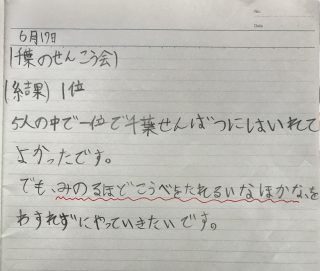 No.
Date
6月17日
|千葉のせんこう会|
(結果) 1位
5人の中で一位で千葉せんばつにはいれて
よかったです。
でも、みのるほどこうべをたれるいなほかな、を
わすれずにやっていきたいです。